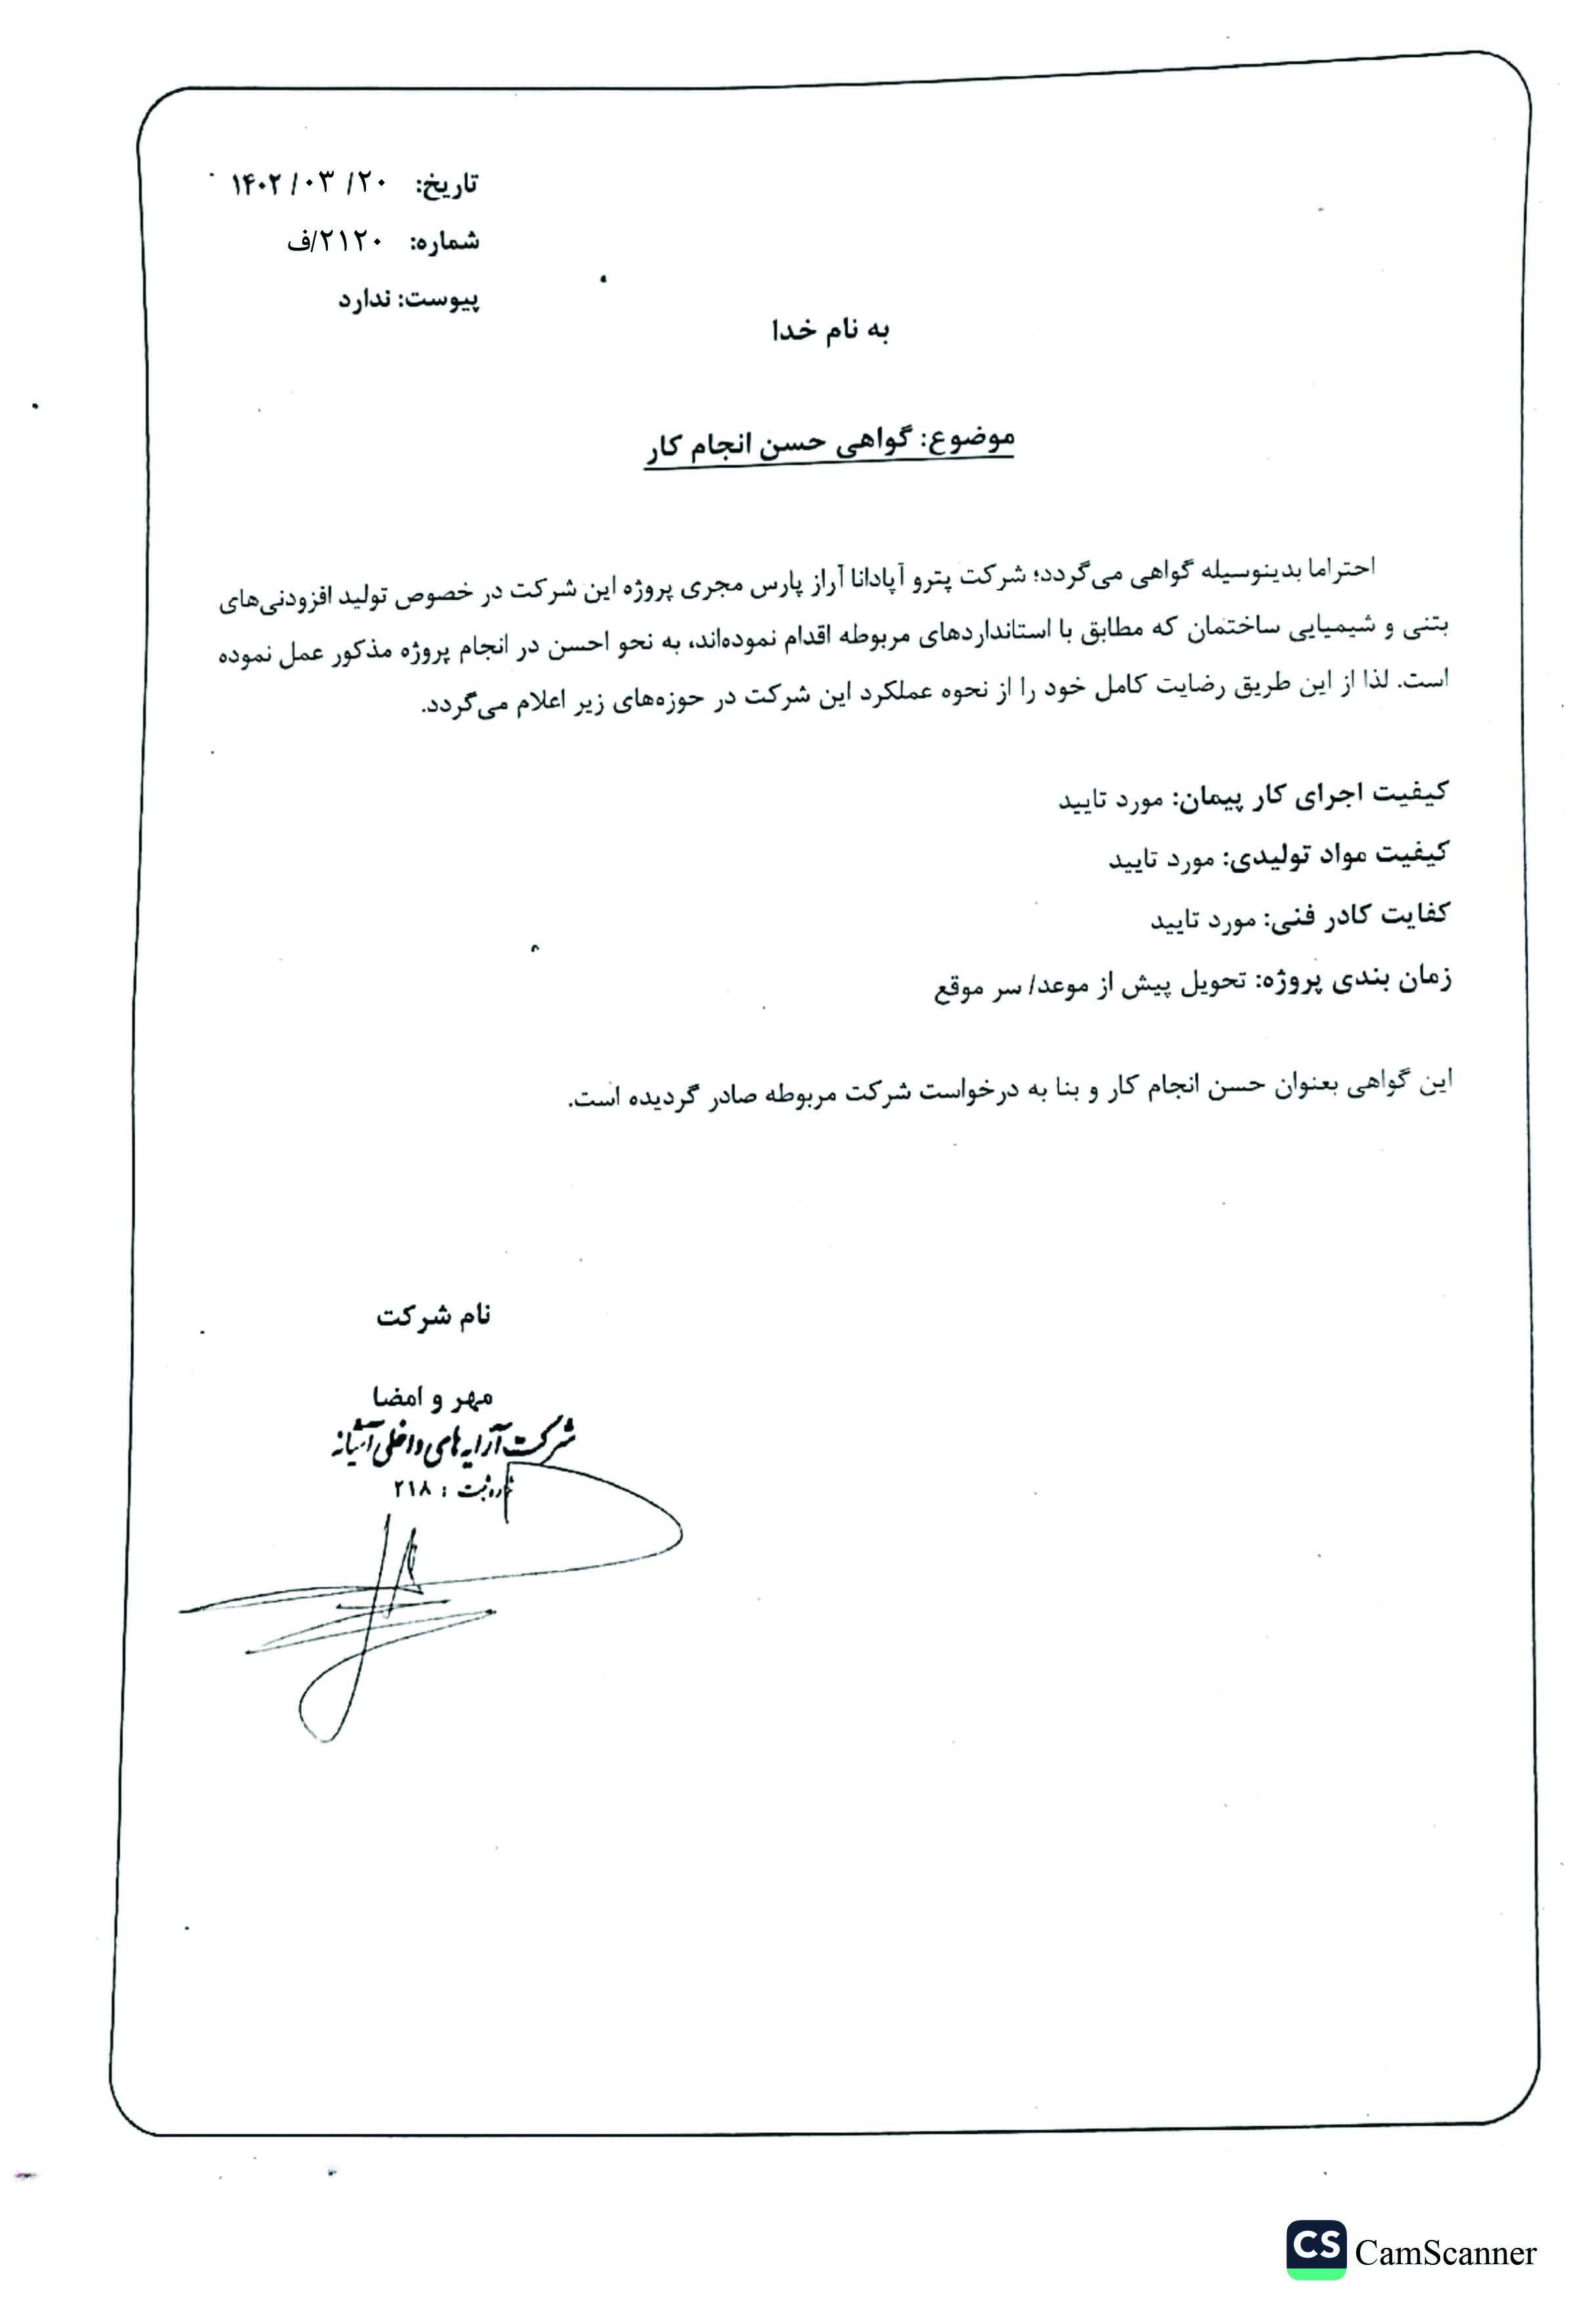 تاریخ: ۱۴۰۲/۰۳/۲۰
شماره: ۲۱۲۰/ف
پیوست: ندارد
به نام خدا
موضوع: گواهی حسن انجام کار
احتراما بدینوسیله گواهی می‌گردد؛ شرکت پترو آپادانا آراز پارس مجری پروژه این شرکت در خصوص تولید افزودنی‌های
بتنی و شیمیایی ساختمان که مطابق با استانداردهای مربوطه اقدام نموده‌اند، به نحو احسن در انجام پروژه مذکور عمل نموده
است. لذا از این طریق رضایت کامل خود را از نحوه عملکرد این شرکت در حوزه‌های زیر اعلام می‌گردد.
کیفیت اجرای کار پیمان: مورد تایید
کیفیت مواد تولیدی: مورد تایید
کفایت کادر فنی: مورد تایید
زمان بندی پروژه: تحویل پیش از موعد/ سر موقع
این گواهی بعنوان حسن انجام کار و بنا به درخواست شرکت مربوطه صادر گردیده است.
نام شرکت
مهر و امضا
شرکت آرایه‌های داخلی آشیانه
شماره ثبت : ۲۱۸
CS CamScanner